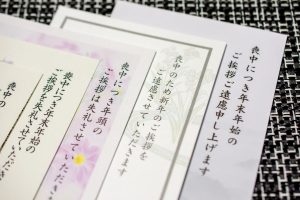 喪中につき年末年始の
ご挨拶ご遠慮申し上げます
喪中のため新年のご挨拶を
ご遠慮させていただきます
喪中につき年頭の
ご挨拶は失礼させていただきます
喪中につき年末年始の
ご挨拶を失礼させていただき